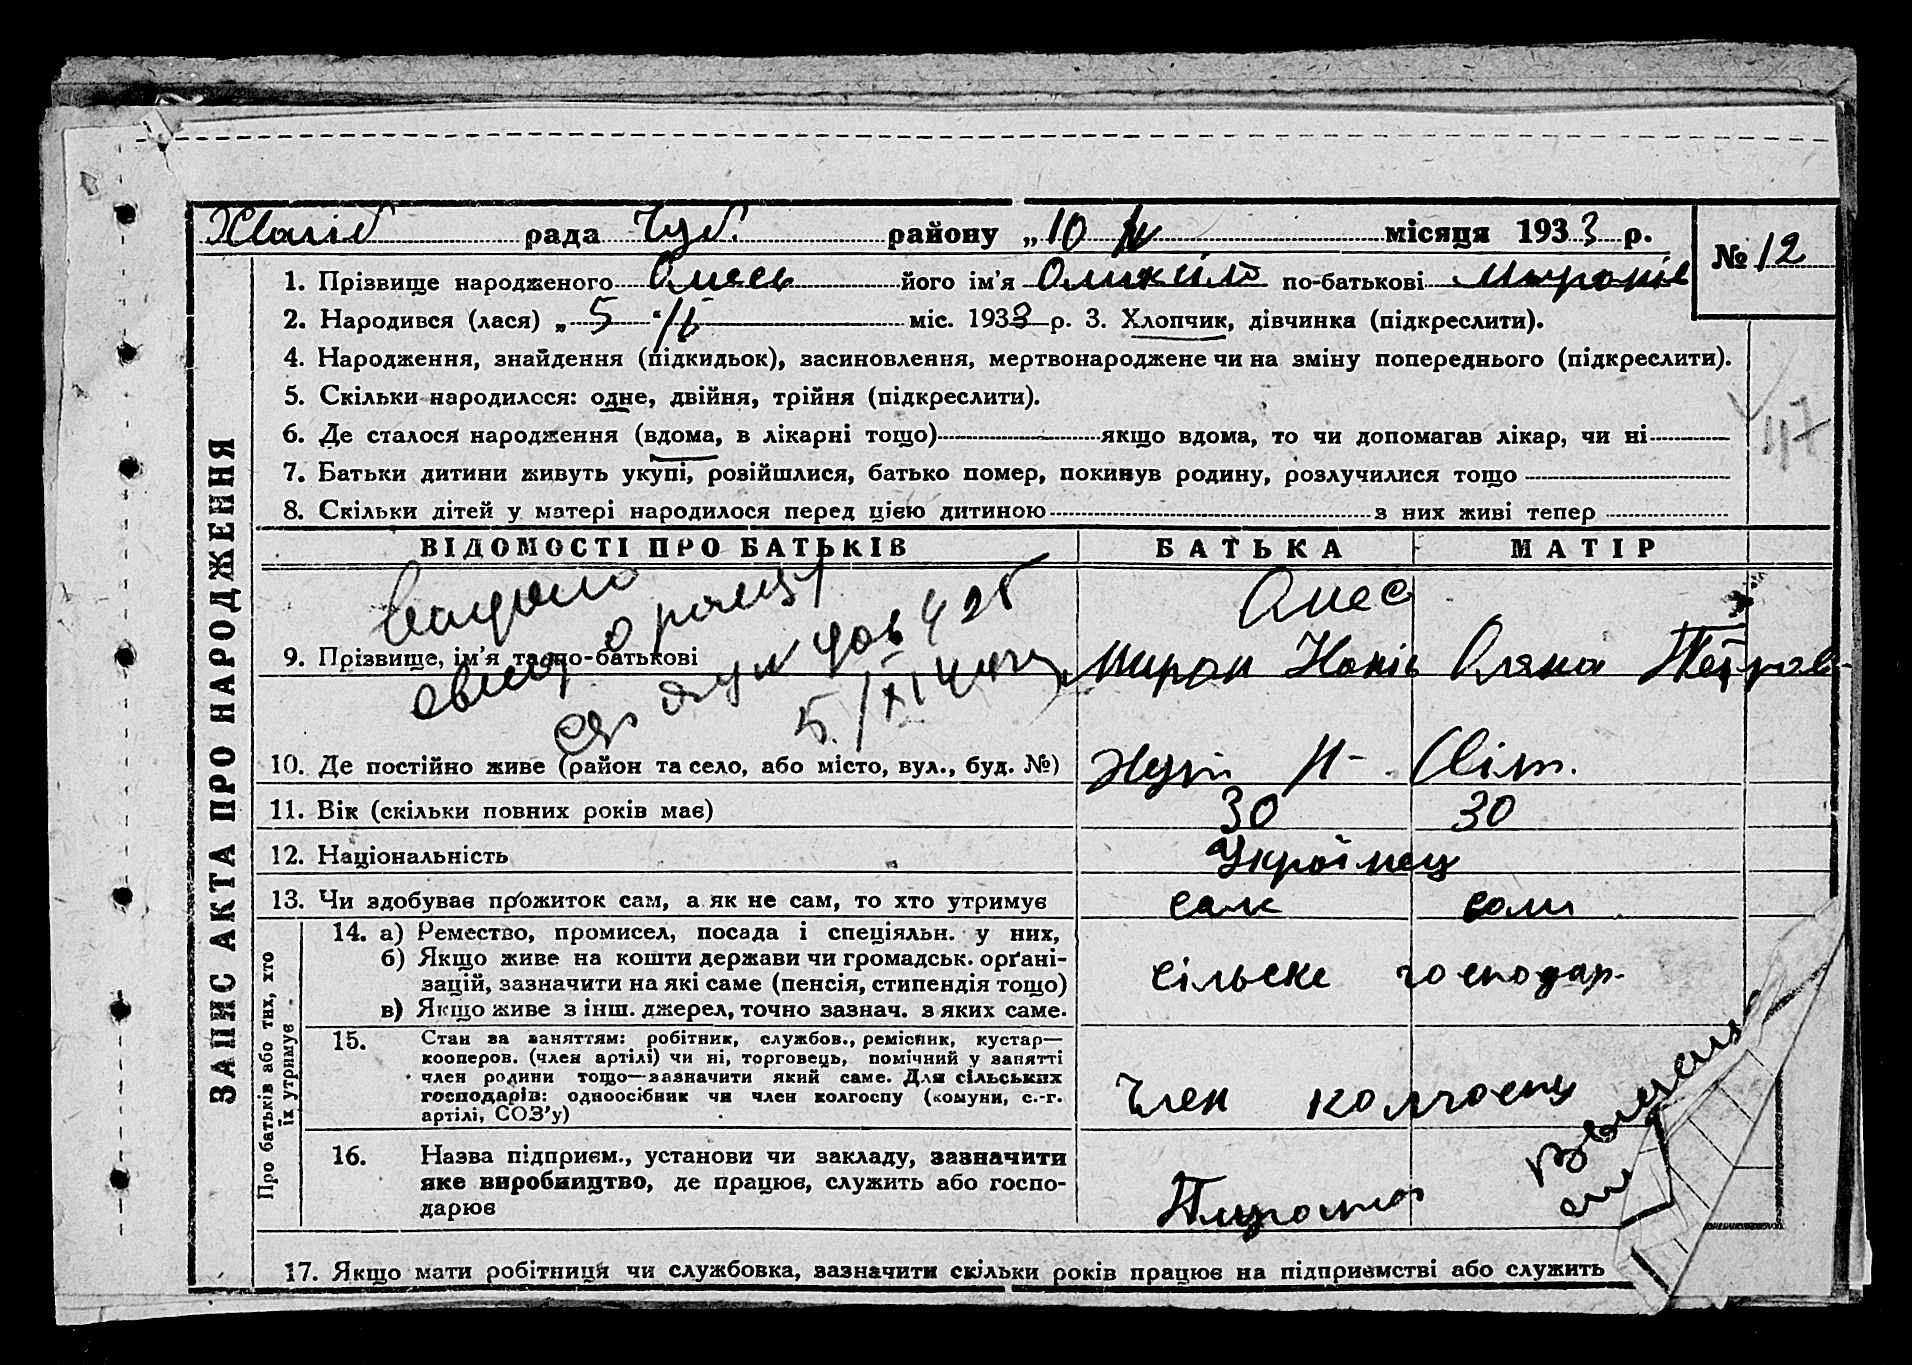 рада Чуб. району „10 місяця 1933 р.
№ 12
1. Прізвище народженого його ім'я по-батькові Миронів
2. Народився (лася) „ 5 “ міс. 1933 р. 3. Хлопчик, дівчинка (підкреслити).
4. Народження, знайдення (підкидьок), засиновлення, мертвонароджене чи на зміну попереднього (підкреслити).
5. Скільки народилося: одне, двійня, трійня (підкреслити).
6. Де сталося народження (вдома, в лікарні тощо) якщо вдома, то чи допомагав лікар, чи ні
7. Батьки дитини живуть укупі, розійшлися, батько помер, покинув родину, розлучилися тощо
8. Скільки дітей у матері народилося перед цією дитиною з них живі тепер
ЗАПИС АКТА ПРО НАРОДЖЕННЯ
ВІДОМОСТІ ПРО БАТЬКІВ БАТЬКА МАТІР
9. Прізвище, ім'я та по-батькові Мирон Оляна Петров
10. Де постійно живе (район та село, або місто, вул., буд. №)
11. Вік (скільки повних років має) 30 30
12. Національність Українец
13. Чи здобуває прожиток сам, а як не сам, то хто утримує сам сами
Про батьків або тих, хто їх утримує
14. а) Ремество, промисел, посада і спеціяльн. у них,
б) Якщо живе на кошти держави чи громадськ. орґані-
зацій, зазначити на які саме (пенсія, стипендія тощо) сільське господар.
в) Якщо живе з інш. джерел, точно зазнач. з яких саме.
15. Стан за заняттям: робітник, службов., ремісник, кустар—
кооперов. (член артілі) чи ні, торговець, помічний у занятті
член родини тощо—зазначити який саме. Для сільських
господарів: одноосібник чи член колгоспу (комуни, с.-г. Член колгоспу
артілі, СОЗ'у)
16. Назва підприєм., установи чи закладу, зазначити
яке виробництво, де працює, служить або госпо-
дарює
17. Якщо мати робітниця чи службовка, зазначити скільки років працює на підприємстві або служить